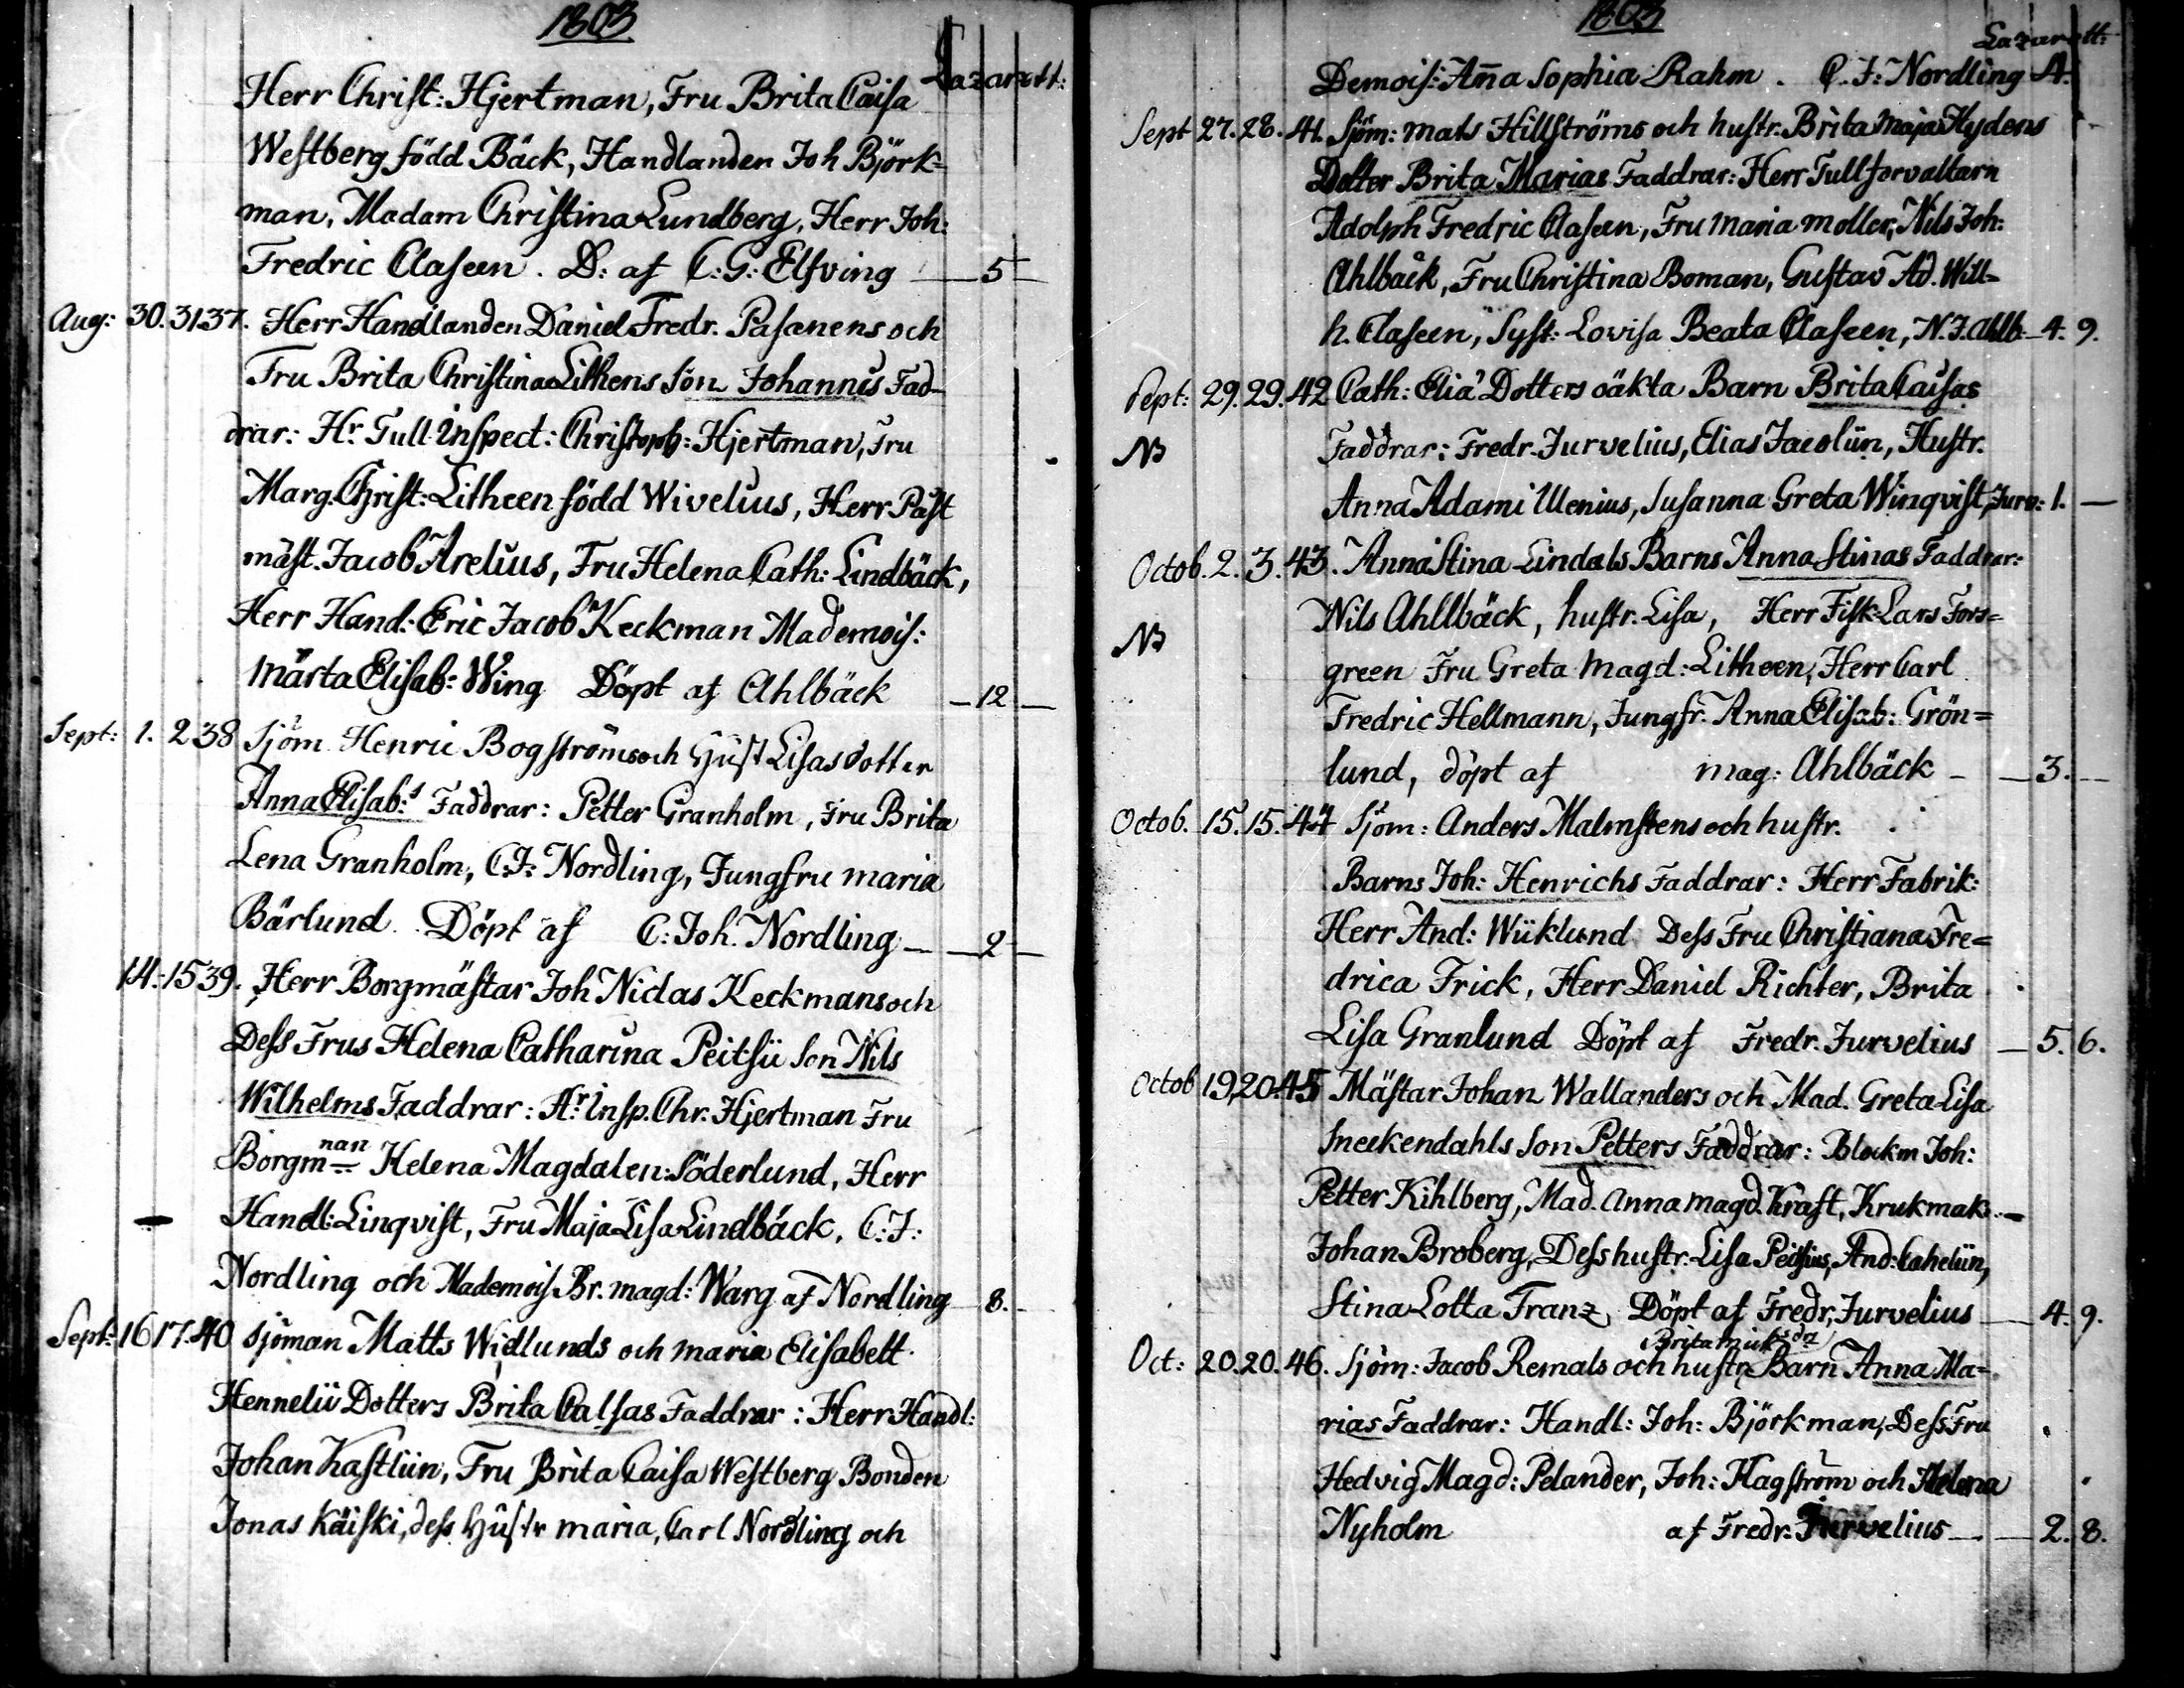 1803
Lazarett:
Herr Christ: Hjertman, Fru Brita Caisa
Westberg född Bäck, Handlanden Joh Björk=
man, Madam Christina Lundberg, Herr Joh:
Fredric Claseen. D: af C: G: Elfving — 5 —
Aug: 30. 31 37. Herr Handlanden Daniel Fredr. Pasanens och
Fru Brita Christina Lithens Son Johannes Fad-
drar: Hr Tull Inspect: Christoph: Hjertman, Fru
Marg. Christ: Litheen född Wivelius, Herr Påst
mäst. Jacob Arelius, Fru Helena Cath: Lindbäck,
Herr Hand: Eric Jacob Keckman Mademois:
Märta Elisab: Wing Döpt af Ahlbäck — 12 —
Sept: 1. 2 38 Sjöm Henric Bogströms och Hust Lisas dotter
Anna Elisab:s Faddrar: Petter Granholm, Fru Brita
Lena Granholm, C. J: Nordling, Jungfru maria
Bärlund. Döpt af C: Joh. Nordling — 2 —
14: 15 39. Herr Borgmästar Joh Niclas Keckmans och
Dess Frus Helena Catharina Peitsii Son Nils
Wilhelms Faddrar: Hr Insp. Chr. Hjertman Fru
Borgmnan Helena Magdalen: Söderlund, Herr
Handl: Linqvist, Fru Maja Lisa Lindbäck, C: J:
Nordling och Mademois Br. magd: Warg af Nordling 8.
Sept: 16 17. 40 Sjöman Matts Widlunds och maria Elisabett
Hennelii Dotters Brita Caisas Faddrar: Herr Handl:
Johan Kastliin, Fru Brita Caisa Westberg Bonden
Jonas Käiski, dess Hustr maria, Carl Nordling och
1803
Lazarett:
Demois: Anna Sophia Rahm. C. J: Nordling 4.
Sept 27. 28. 41. Sjöm: mats Hillströms och hustr. Brita Maja Hydens
Dotter Brita Marias Faddrar: Herr Tullforvaltarn
Adolph Fredric Claseen, Fru Maria Moller, Nils Joh:
Ahlbäck, Fru Christina Boman, Gustav Ad. Will-
h. Claseen, Syst: Lovisa Beata Claseen, N. J. Ahlb. — 4. 9.
Sept: 29. 29. 42 Cath: Elia Dotters oäkta Barn Brita Caisas
NB Faddrar: Fredr. Jurvelius, Elias Jacoliin, Hustr.
Anna Adami Ulenius, Susanna Greta Winqvist, Jurv: 1. —
Octob. 2. 3. 43. Anna Stina Lindals Barns Anna Stinas Faddrar:
NB Nils Ahllbäck, hustr. Lisa, Herr Fisk: Lars Fors=
green Fru Greta Magd: Litheen, Herr Carl
Fredric Hellmann, Jungfr. Anna Elisab: Grön=
lund, döpt af mag: Ahlbäck — 3. —
Octob. 15. 15. 44 Sjöm: Anders Malmstens och hustr.
Barns Joh: Henrichs Faddrar: Herr Fabrik:
Herr And: Wiiklund Dess Fru Christiana Fre=
drica Frick, Herr Daniel Richter, Brita
Lisa Granlund Döpt af Fredr. Jurvelius — 5. 6.
Octob 19, 20. 45 Mästar Johan Wallanders och Mad. Greta Lisa
Sneckendahls Son Petters Faddrar: Blockm Joh:
Petter Kihlberg, Mad. Anna Magd. Kraft, Krukmak:
Johan Broberg, Dess hustr. Lisa Peitsius, And: Caheliin,
Stina Lotta Franz, Döpt af Fredr, Jurvelius — 4. 9.
Brita Michsda
Oct: 20. 20. 46. Sjöm: Jacob Remals och hustr. Barn Anna Ma=
rias Faddrar: Handl: Joh: Björkman, Dess Fru
Hedvig Magd: Pelander, Joh: Hagström och Helena
Nyholm af Fredr. Jurvelius — 2. 8.